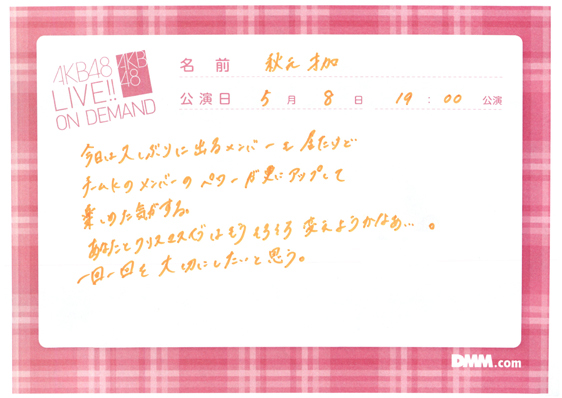 AKB48
LIVE!!
ON DEMAND
AKB
48
名前 秋元才加
公演日 5月8日 19:00 公演
今日は久しぶりに出るメンバーも居たけど
チームKのメンバーのパワーが更にアップして
楽しめた気がする。
あなたとクリスマスイブはもうそろそろ変えようかなぁ…。
一回一回を大切にしたいと思う。
DMM.com